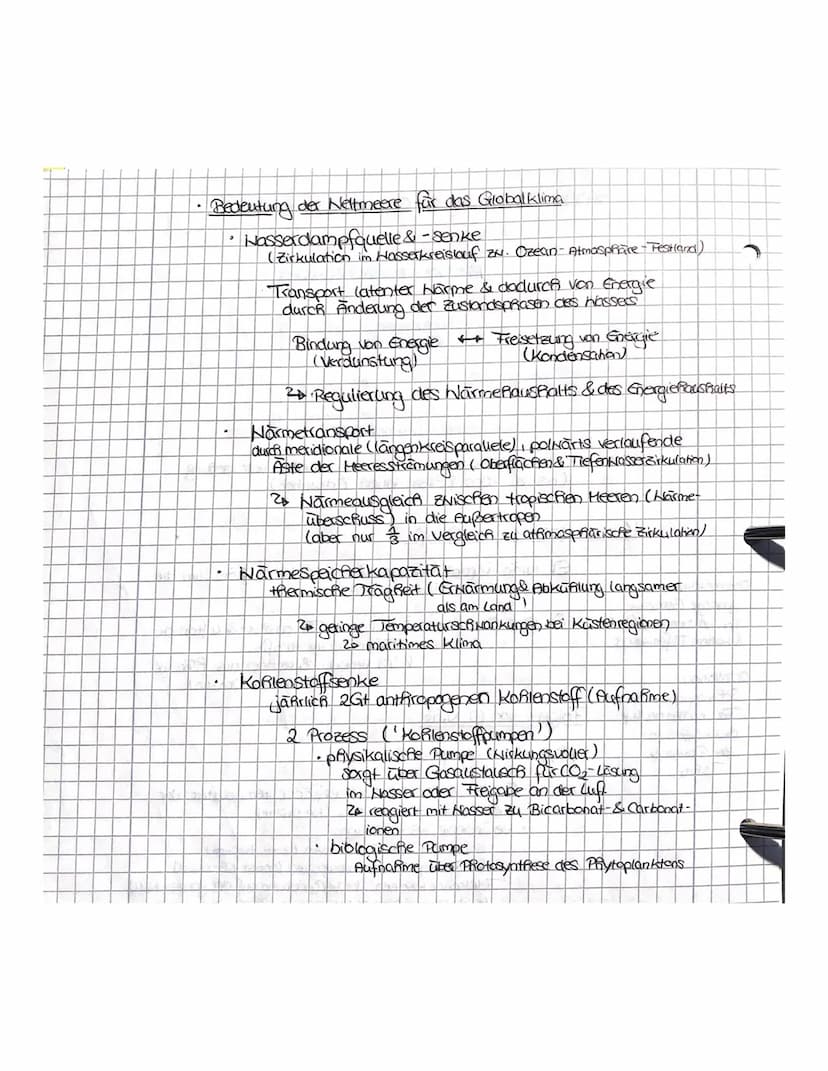 · Bedeutung der Weltmeere für das Globalklima
· Wasserdampfquelle & -senke
(Zirkulation im Wasserkreislauf zw. Ozean - Atmosphäre - Festland)
Transport latenter Wärme & dadurch von Energie
durch Änderung der Zustandsphasen des Wassers
Bindung von Energie ↔ Freisetzung von Energie
(Verdunstung) (Kondensation)
↳ Regulierung des Wärmehaushalts & des Energiehaushalts
· Wärmetransport
durch meridionale (längenkreisparallele), polwärts verlaufende
Äste der Meeresströmungen (Oberflächen & Tiefenwasserzirkulation)
↳ Wärmeausgleich zwischen tropischen Meeren (Wärme-
überschuss) in die Außertropen
(aber nur 1/3 im Vergleich zu athmosphärische Zirkulation)
· Wärmespeicherkapazität
thermische Trägheit (Erwärmung & Abkühlung langsamer
als am Land)
↳ geringe Temperaturschwankungen bei Küstenregionen
↳ maritimes Klima
· Kohlenstoffsenke
jährlich 2Gt anthropogenen Kohlenstoff (Aufnahme)
2 Prozess ('Kohlenstoffpumpen')
· physikalische Pumpe (wirkungsvoller)
sorgt über Gasaustausch für CO₂-Lösung
im Wasser oder Freigabe an der Luft
↳ reagiert mit Wasser zu Bicarbonat- & Carbonat-
ionen
· biologische Pumpe
Aufnahme über Photosynthese des Phytoplanktons